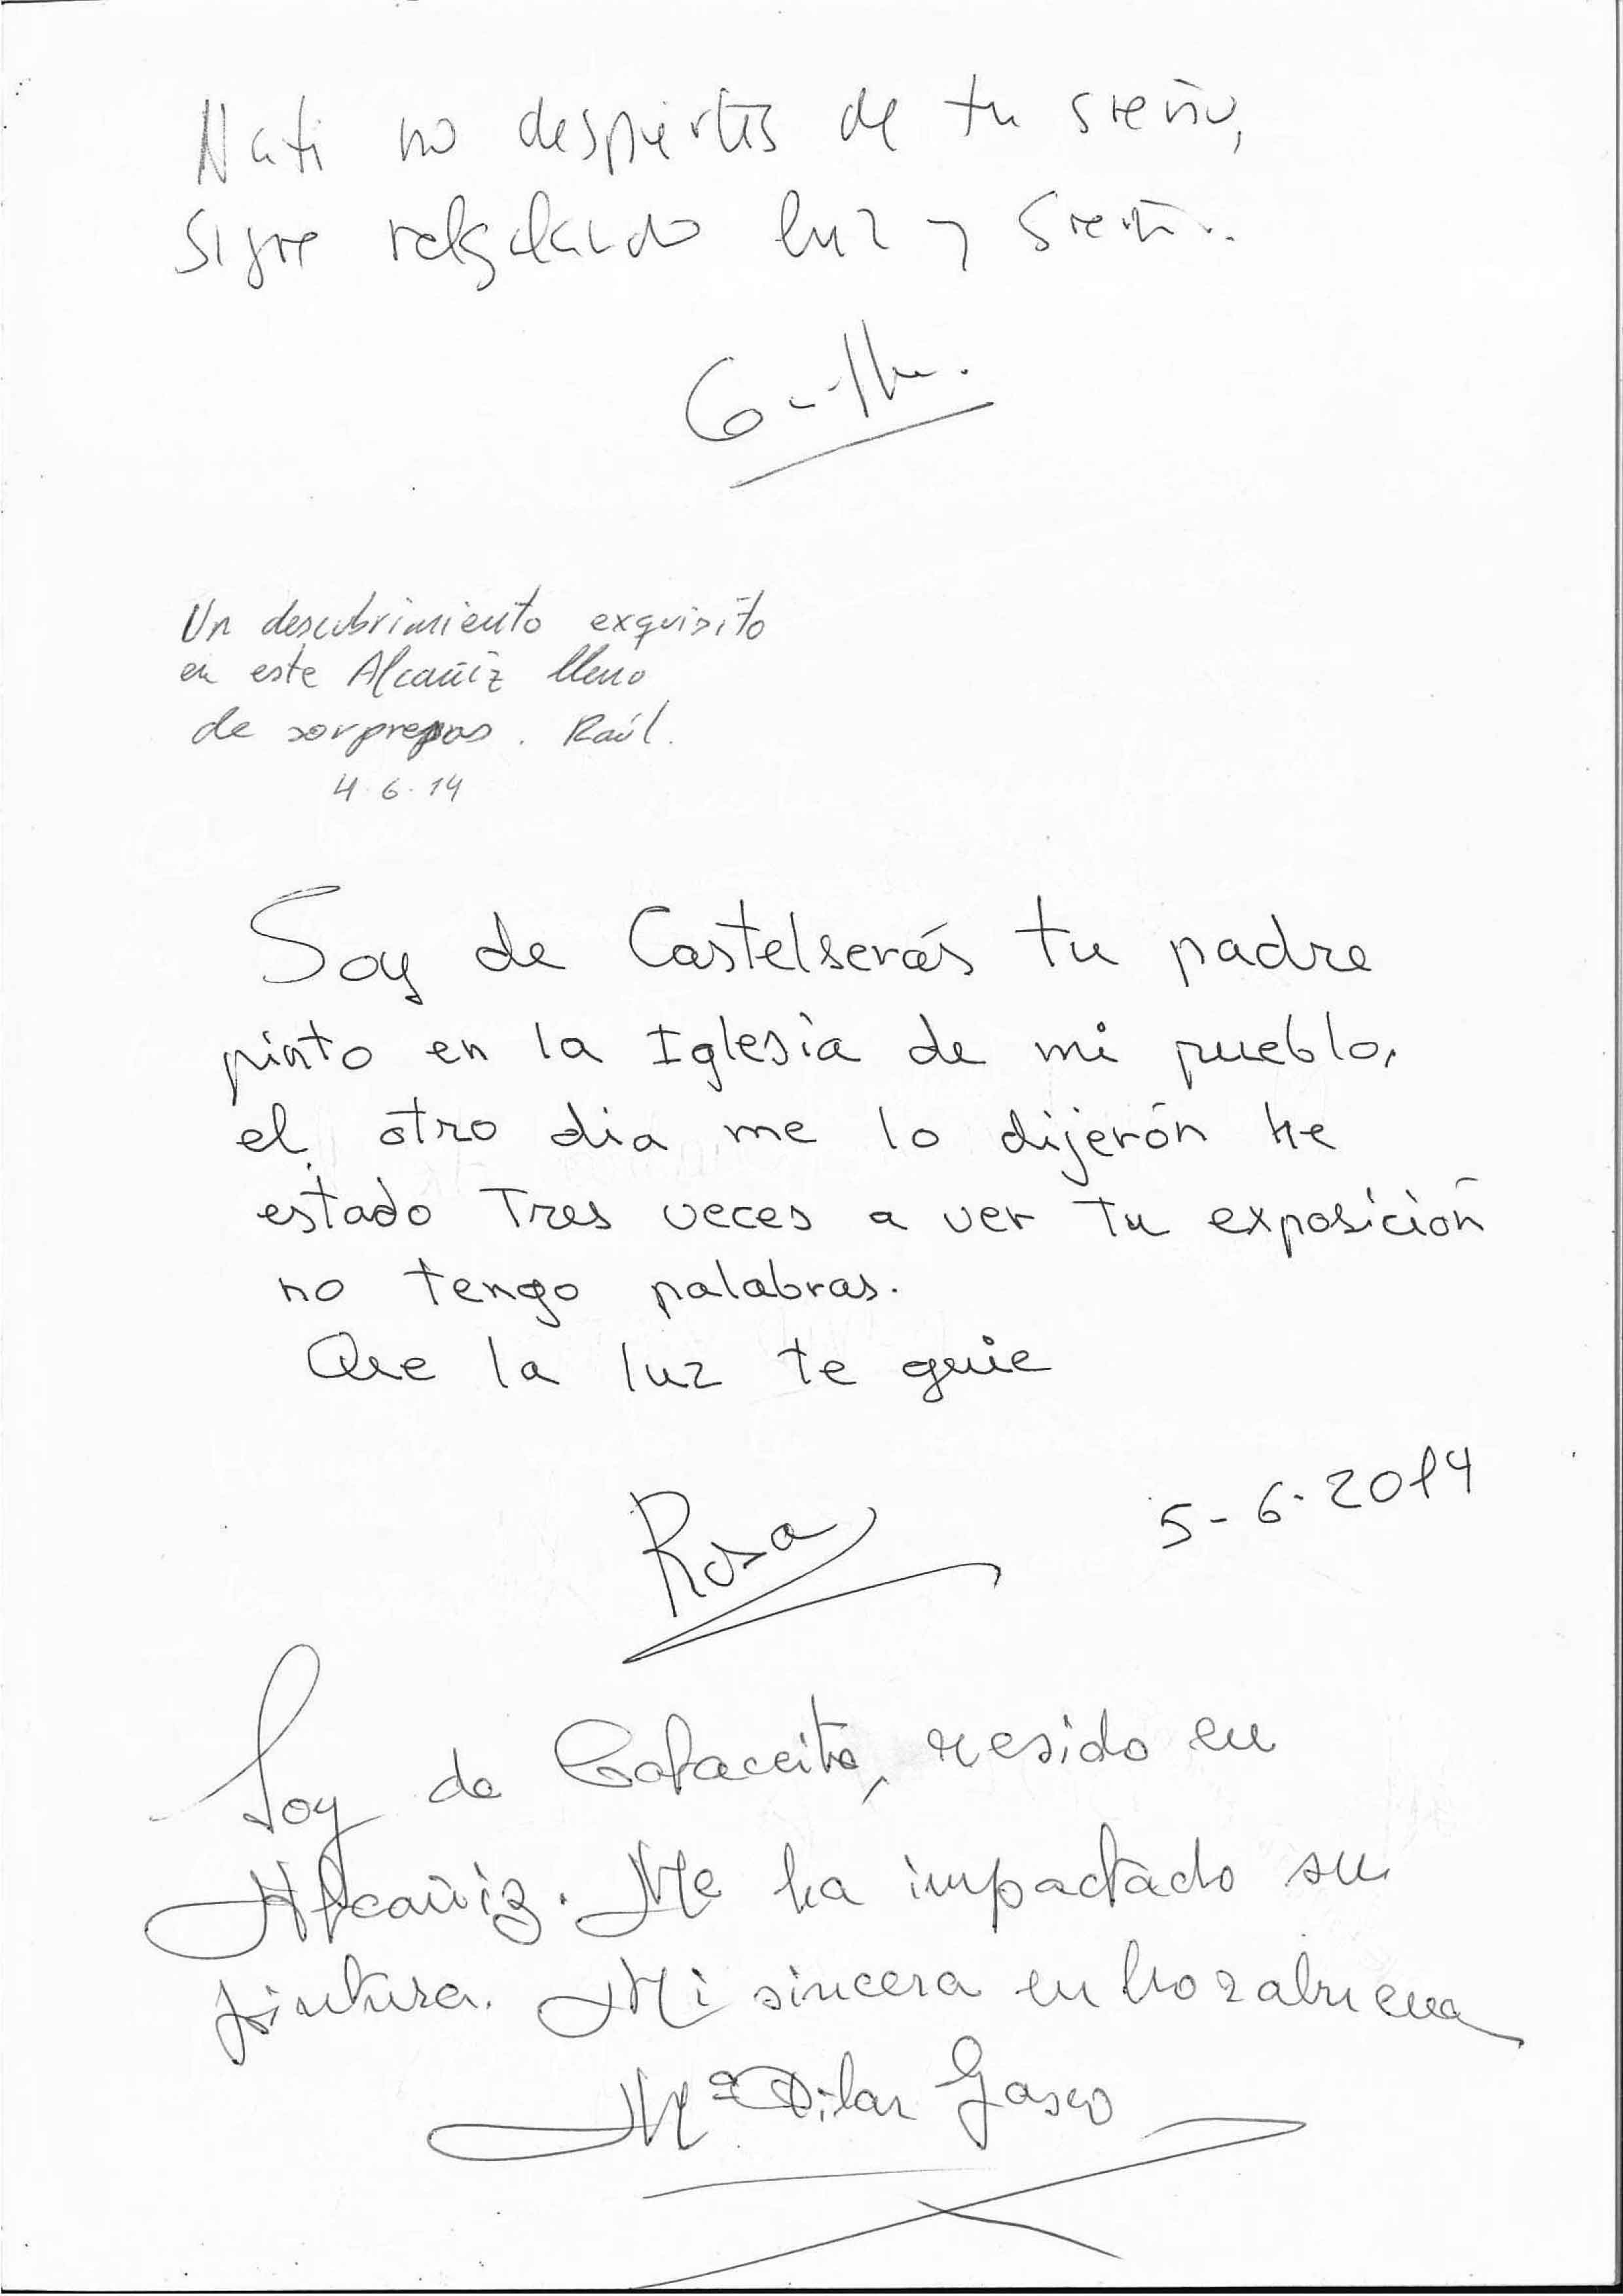 Nati no despiertes de tu sueño,
sigue regalando luz y sueño.
Un descubrimiento exquisito
en este Alcañiz lleno
de sorpresas. Raúl.
4.6.14
Soy de Castelserás tu padre
pinto en la Iglesia de mi pueblo,
el otro dia me lo dijerón he
estado Tres veces a ver tu exposición
no tengo palabras.
Que la luz te guie
Rosa 5-6-2014
Soy de Calaceite, resido en
Alcañiz. Me ha impactado su
pintura. Mi sincera enhorabuena
Mª Pilar Gasco